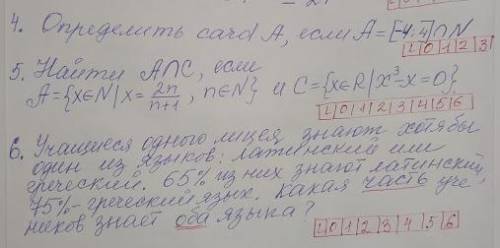 4. Определить card A, если A=[-4;4]∩N
L 0 1 2 3
5. Найти A∩C, если
A={x∈N | x= 2n/n+1, n∈N} и C={x∈R | x³-x=0}
L 0 1 2 3 4 5 6
6. Учащиеся одного лицея знают хотя бы
один из языков: латинский или
греческий. 65% из них знают латинский,
75%- греческий язык. Какая часть уче-
ников знает оба языка?
L 0 1 2 3 4 5 6